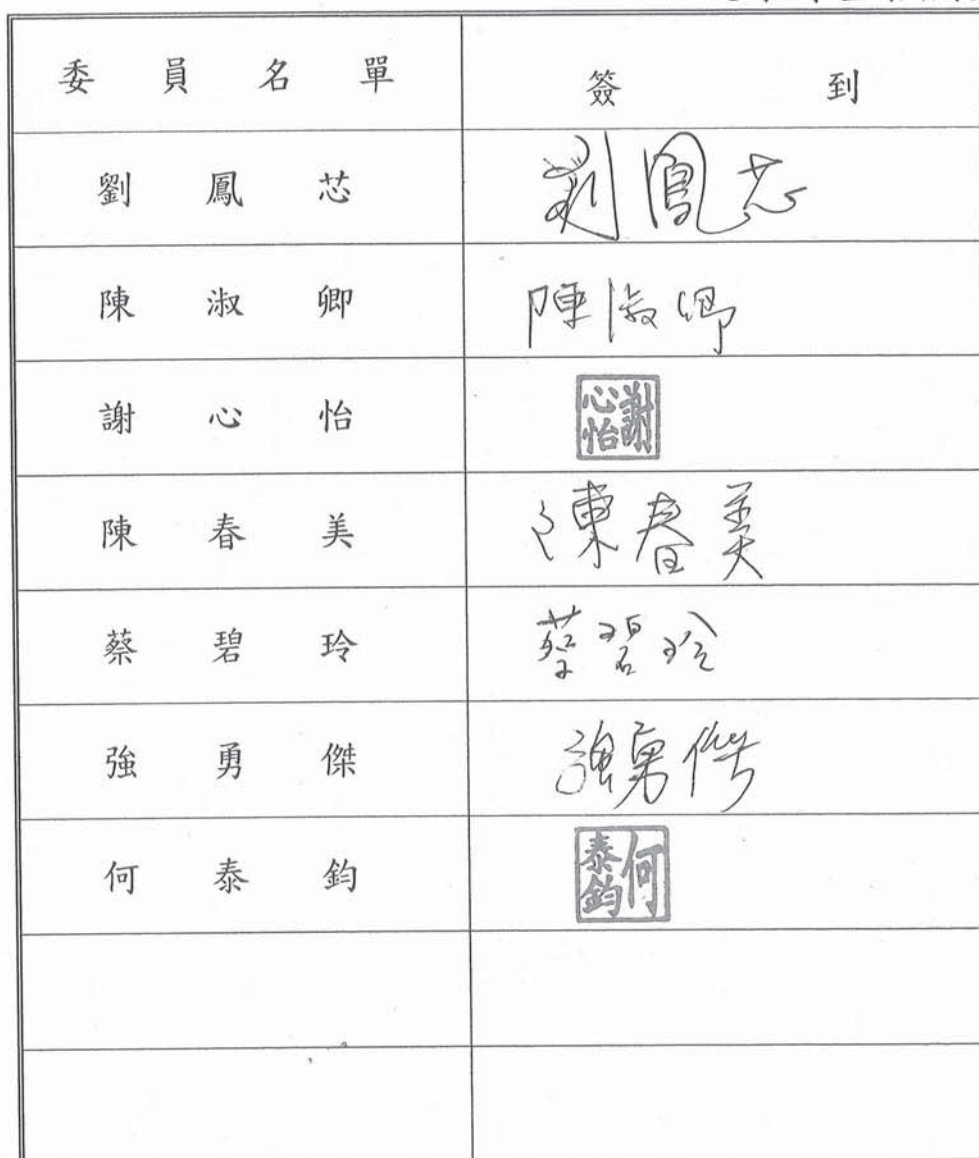 委員名單 簽到
劉鳳芯 劉鳳芯
陳淑卿 陳淑卿
謝心怡 謝心怡
陳春美 陳春美
蔡碧玲 蔡碧玲
強勇傑 強勇傑
何泰鈞 何泰鈞